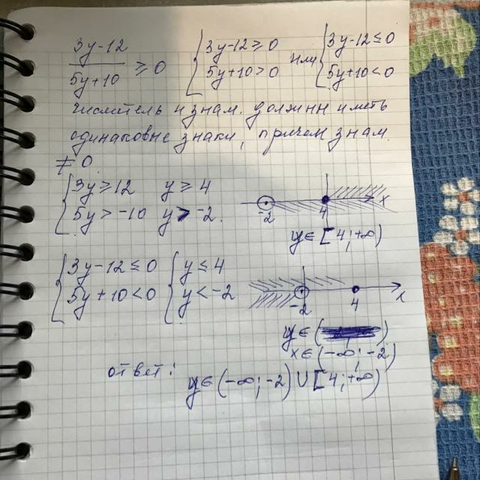 (3y-12)/(5y+10) ≥ 0 { 3y-12 ≥ 0 5y+10 > 0 или { 3y-12 ≤ 0 5y+10 < 0
числитель и знам. должны иметь
одинаковые знаки, причем знам.
≠ 0
{ 3y ≥ 12 y ≥ 4
5y > -10 y > -2.
-2 4 x
y ∈ [4; +∞)
{ 3y-12 ≤ 0 { y ≤ 4
5y+10 < 0 y < -2
-2 4 x
y ∈ (
x ∈ (-∞; -2)
ответ: y ∈ (-∞; -2) ∪ [4; +∞)